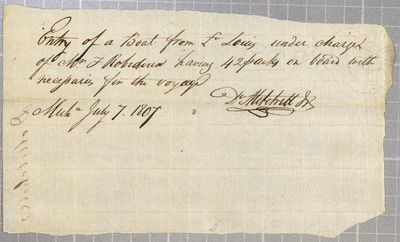 Entry of a Boat from St Louis under charge
of Mr F Robidoux having 42 packs on board with
necessaries for the voyage
Mich.a July 7. 1807
Dd Mitchell